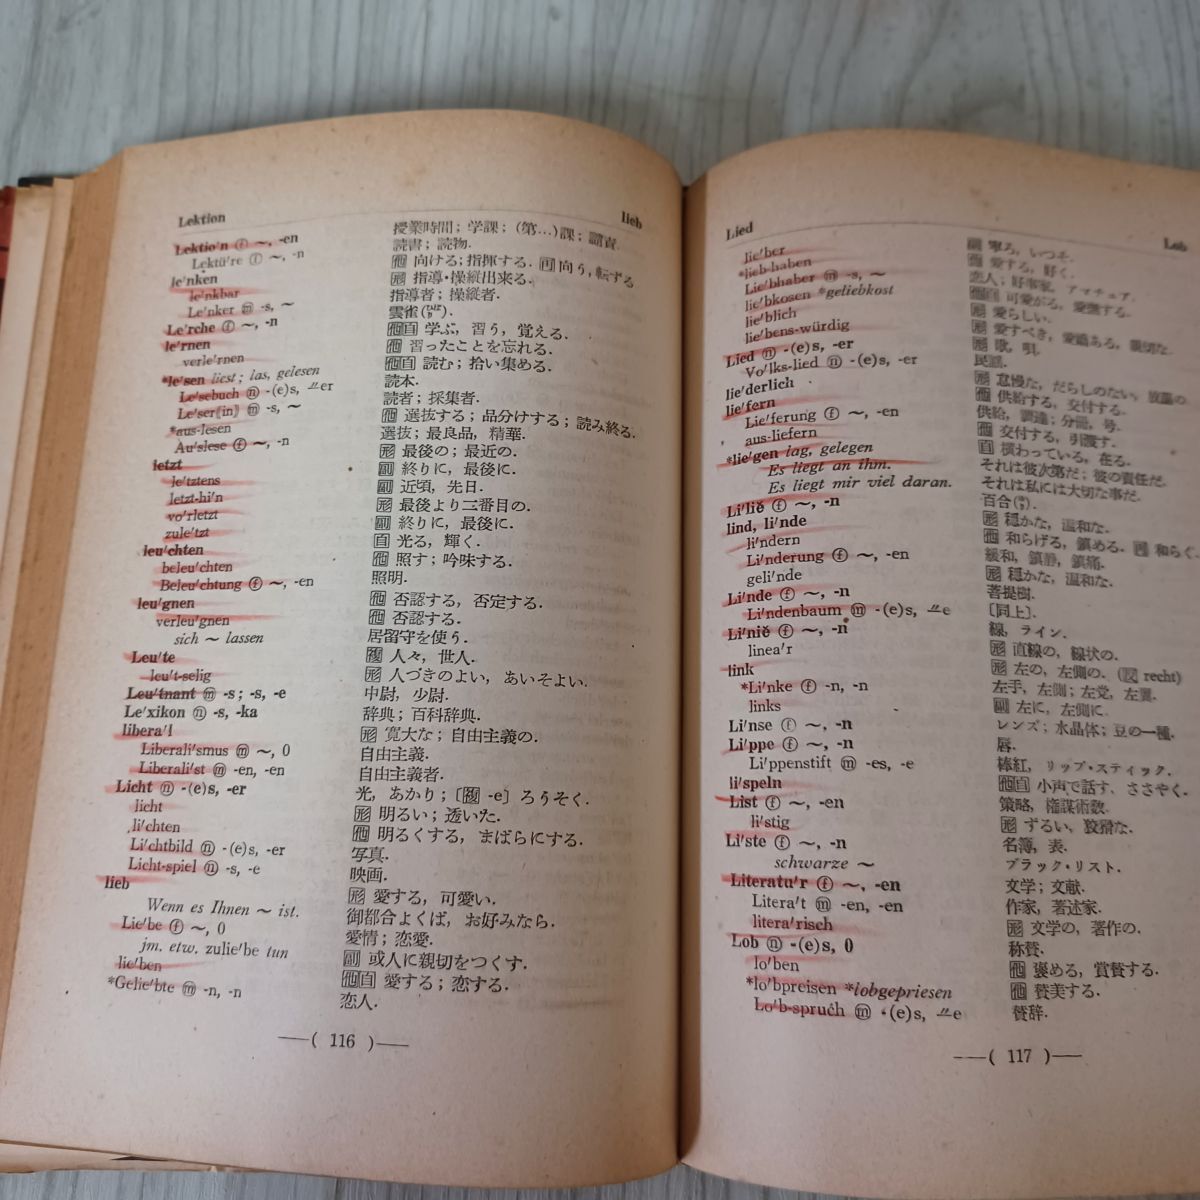 Lektion
lieb
Lektio′n ⓕ ～, -en 授業時間; 学課; (第...)課; 譴責.
Lektü′re ⓕ ～, -n 読書; 読物.
le′nken 他 向ける; 指揮する. 再 向う, 転ずる
le′nkbar 形 指導・操縦出来る.
Le′nker ⓜ -s, ～ 指導者; 操縦者.
Le′rche ⓕ ～, -n 雲雀(ひばり).
le′rnen 他自 学ぶ, 習う, 覚える.
verle′rnen 他 習ったことを忘れる.
*le′sen liest; las, gelesen 他自 読む; 拾い集める.
Le′sebuch ⓝ -(e)s, ⸚er 読本.
Le′ser[in] ⓜ -s, ～ 読者; 採集者.
*aus-lesen 他 選抜する; 品分けする; 読み終る.
Au′slese ⓕ ～, -n 選抜; 最良品, 精華.
letzt 形 最後の; 最近の.
le′tztens 副 終りに, 最後に.
letzt-hi′n 副 近頃, 先日.
vo′rletzt 形 最後より二番目の.
zule′tzt 副 終りに, 最後に.
leu′chten 自 光る, 輝く.
beleu′chten 他 照す; 吟味する.
Beleu′chtung ⓕ ～, -en 照明.
leu′gnen 他 否認する, 否定する.
verleu′gnen 他 否認する.
sich ～ lassen 居留守を使う.
Leu′te 複 人々, 世人.
leu′t-selig 形 人づきのよい, あいそよい.
Leu′tnant ⓜ -s; -s, -e 中尉, 少尉.
Le′xikon ⓝ -s, -ka 辞典; 百科辞典.
libera′l 形 寛大な; 自由主義の.
Liberali′smus ⓜ ～, 0 自由主義.
Liberali′st ⓜ -en, -en 自由主義者.
Licht ⓝ -(e)s, -er 光, あかり; 〔複 -e〕ろうそく.
licht 形 明るい; 透いた.
li′chten 他 明るくする, まばらにする.
Li′chtbild ⓝ -(e)s, -er 写真.
Licht-spiel ⓝ -s, -e 映画.
lieb 形 愛する, 可愛い.
Wenn es Ihnen ～ ist. 御都合よくば, お好みなら.
Lie′be ⓕ ～, 0 愛情; 恋愛.
jm. etw. zulie′be tun 副 或人に親切をつくす.
lie′ben 他自 愛する; 恋する.
*Gelie′bte ⓜ -n, -n 恋人.
—( 116 )—
Lied
Lob
lie′ber 副 寧ろ, いつそ.
*lieb-haben 他 愛する, 好く.
Lie′bhaber ⓜ -s, ～ 恋人; 好事家, アマチュア.
lie′bkosen *geliebkost 他自 可愛がる, 愛撫する.
lie′blich 形 愛らしい.
lie′bens-würdig 形 愛すべき, 愛嬌ある, 親切な.
Lied ⓝ -(e)s, -er 歌, 唄.
Vo′lks-lied ⓝ -(e)s, -er 民謡.
lie′derlich 形 怠慢な, だらしのない, 放蕩の.
lie′fern 他 供給する, 交付する.
Lie′ferung ⓕ ～, -en 供給, 調達; 分冊, 号.
aus-liefern 他 交付する, 引渡す.
*lie′gen lag, gelegen 自 横わっている, 在る.
Es liegt an ihm. それは彼次第だ; 彼の責任だ.
Es liegt mir viel daran. それは私には大切な事だ.
Li′liĕ ⓕ ～, -n 百合(ゆり).
lind, li′nde 形 穏かな, 温和な.
li′ndern 他 和らげる, 鎮める. 再 和らぐ.
Li′nderung ⓕ ～, -en 緩和, 鎮静, 鎮痛.
geli′nde 形 穏かな, 温和な.
Li′nde ⓕ ～, -n 菩提樹.
Li′ndenbaum ⓜ -(e)s, ⸚e 〔同上〕.
Li′niĕ ⓕ ～, -n 線, ライン.
linea′r 形 直線の, 線状の.
link 形 左の, 左側の. (反 recht)
*Li′nke ⓕ -n, -n 左手, 左側; 左党, 左翼.
links 副 左に, 左側に.
Li′nse ⓕ ～, -n レンズ; 水晶体; 豆の一種.
Li′ppe ⓕ ～, -n 唇.
Li′ppenstift ⓜ -es, -e 棒紅, リップ・スティック.
li′speln 他自 小声で話す, ささやく.
List ⓕ ～, -en 策略, 権謀術数.
li′stig 形 ずるい, 狡猾な.
Li′ste ⓕ ～, -n 名簿, 表.
schwarze ～ ブラック・リスト.
Literatu′r ⓕ ～, -en 文学; 文献.
Litera′t ⓜ -en, -en 作家, 著述家.
litera′risch 形 文学の, 著作の.
Lob ⓝ -(e)s, 0 称賛.
lo′ben 他 褒める, 賞賛する.
*lo′bpreisen *lobgepriesen 他 賛美する.
Lo′b-spruch ⓜ -(e)s, ⸚e 賛辞.
—( 117 )—